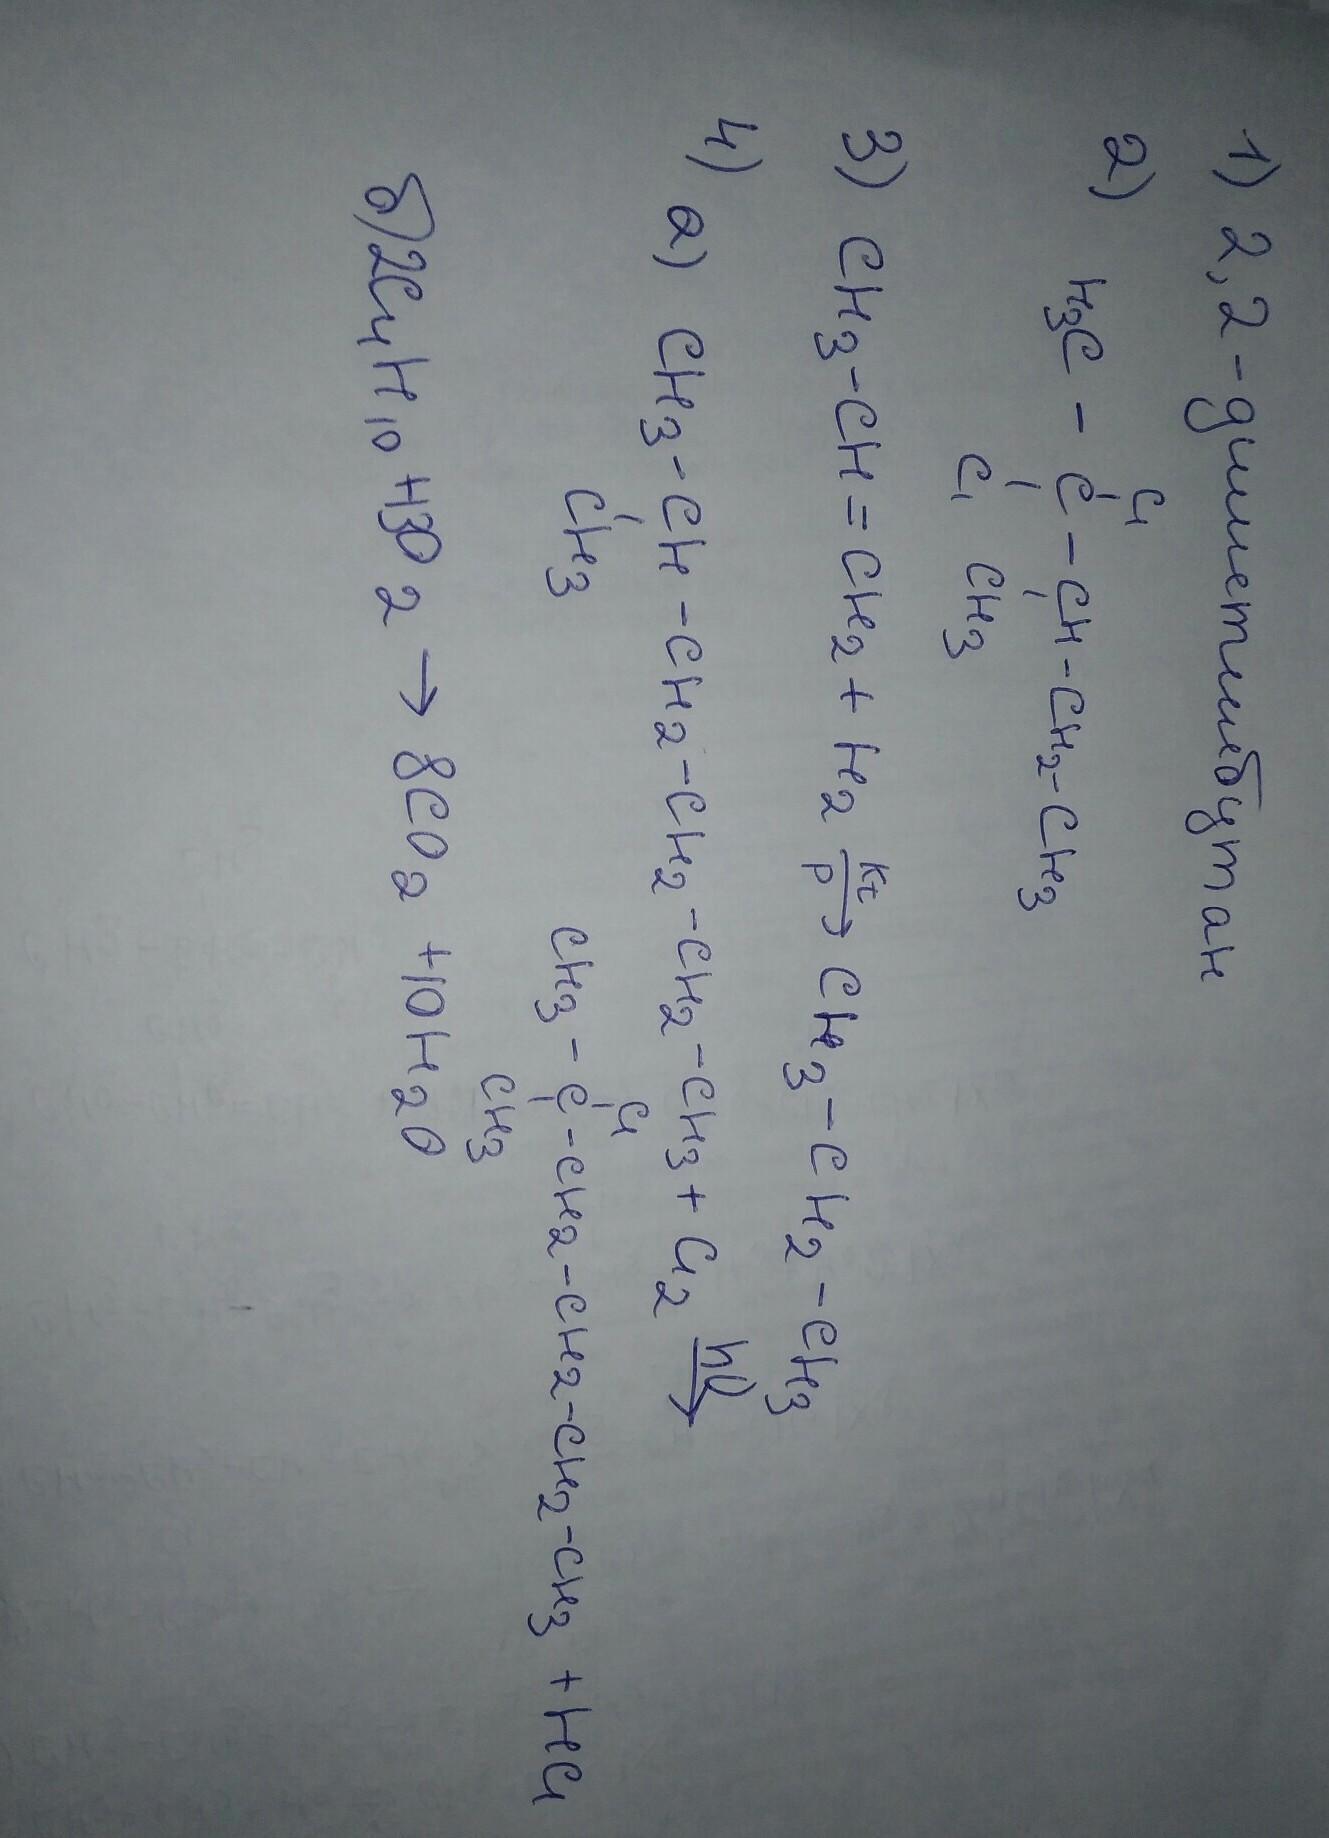 1) 2,2-диметилбутан
2)
Cl
H3C - C - CH - CH2 - CH3
Cl CH3
3) CH3-CH=CH2 + H2 kt/p → CH3-CH2-CH3
4) а) CH3-CH-CH2-CH2-CH2-CH3 + Cl2 hν →
CH3
Cl
CH3-C-CH2-CH2-CH2-CH3 + HCl
CH3
б) 2C4H10 + 13O2 → 8CO2 + 10H2O